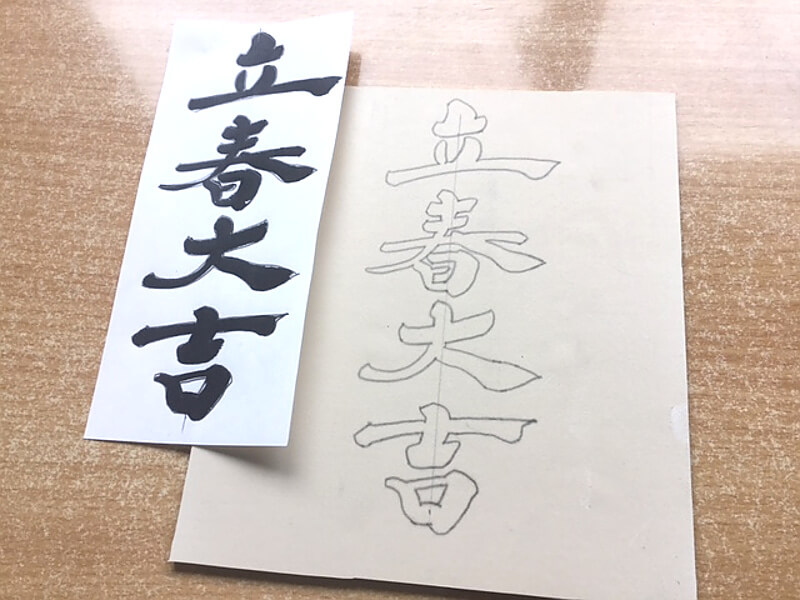 立春大吉
立春大吉